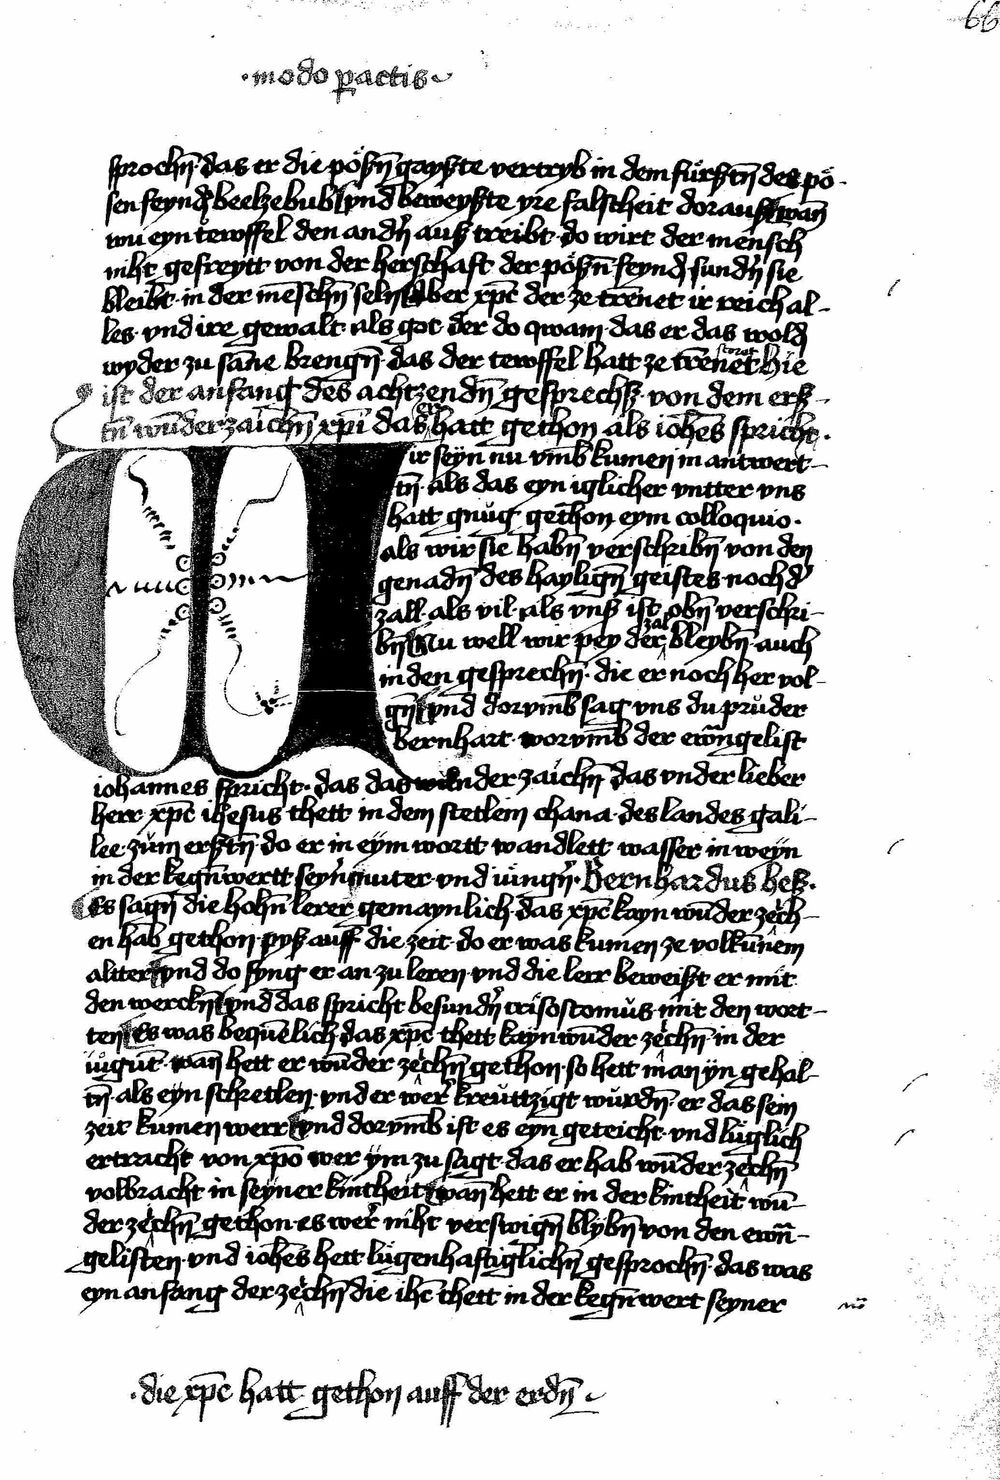 66
·modo p̱actis·
sprochn̄·das er die pößn̄ gayste vertryb in dem fürstn̄ des pö-
sen feynd̄ beelzebub vnd beweyste yre falscheit dorauß wan̄
wu eyn tewffel den andn̄ auß treibt·do wirt der mensch
niht gefreytt von der herschaft der pößn̄ feynd̄ sundn̄ sie
bleibt·in der mēschn̄ seln̄ aber xp̄c der ze trēnet ir reich al-
les·vnd ire gewalt·als got·der do qwam·das er das wold̄
wyder zu sāne brengn̄·das der tewffel hatt ze trēnet hie
ist der anfang des achtzendn̄ gesprechß·von dem erß-
tn̄ wūderzaichn̄ xp̄i das er hatt gethon als ioh̄es spricht·
ir seyn nu vm̄b kumen in antwert-
tn̄·als das eyn iglicher vntter vns
hatt gnug gethon eym colloquio·
als wir sie habn̄ verschribn̄ von den
genadn̄ des haylign̄ geistes·noch d'
zall·als vil·als vnß ist obn̄ verschri-
bn̄ Nu well wir pey der zal bleybn̄·auch
in den gesprechn̄·die er noch her vol-
gn̄ vnd dorvm̄b sag vns du pruder
bernhart·worvm̄b der ewāngelist
iohannes spricht·das das wunder zaichn̄ das vnder lieber
herr xp̄c ihesus thett in dem stetlein chana·des landes gali-
lee·zum erstn̄·do er in eym wortt wandlett wasser in weyn
in der kegn̄wertt seyn̄ muter·vnd iūngn̄·Bernhardus heß·
Es sagn̄ die hohn̄ lerer gemaynlich·das xp̄c kayn wūder zech-
en hab gethon·pyß auff die zeit·do er was kumen ze volkūnem
alter vnd do fyng er an zu leren·vnd die lerr beweißt er mit
den werckn̄ vnd das spricht besundn̄ crisostomus·mit den wort-
ten Es was bequēlich das xp̄c thett kayn wūder zechn̄·in der
iugut·wan̄ hett er wūder zechn̄ gethon·so hett man yn gehal-
tn̄·als eyn schretlen·vnd er wer kreuttzigt wurdn̄ er das sein
zeit kumen werr vnd dorvm̄b ist es eyn geteicht·vnd luglich
ertracht von xp̄o wer ym zu sagt·das er hab wūder zechn̄
volbracht in seyner kintheit wan̄ hett er in der kintheit wū-
der zechn̄ gethon·es wer niht verswign̄ blybn̄ von den ewā-
gelisten·vnd ioh̄es hett lugenhaftiglichn̄ gesprochn̄·das was
eyn anfang der zechn̄ die ih̄c thett in der kegn̄wert seyner
·die xp̄c hatt gethon auff der erdn̄·